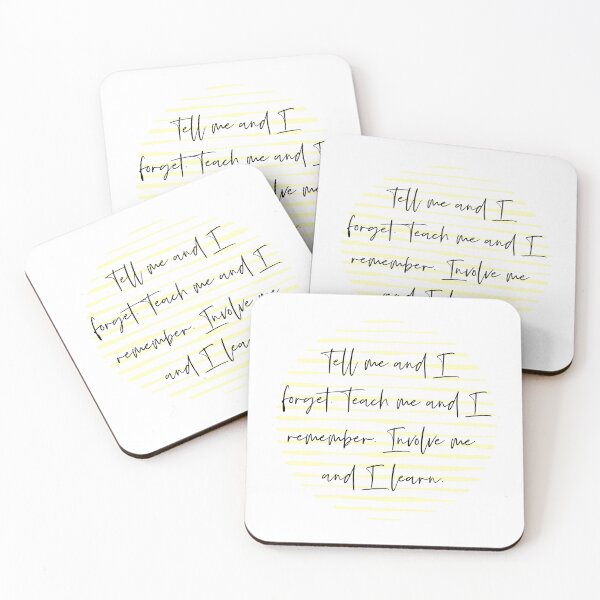 Tell me and I
forget. Teach me and I
me
Tell me and I
forget. Teach me and I
remember. Involve me
and I learn
Tell me and I
forget. Teach me and I
remember. Involve me
and I learn
Tell me and I
forget. Teach me and I
remember. Involve me
and I learn.